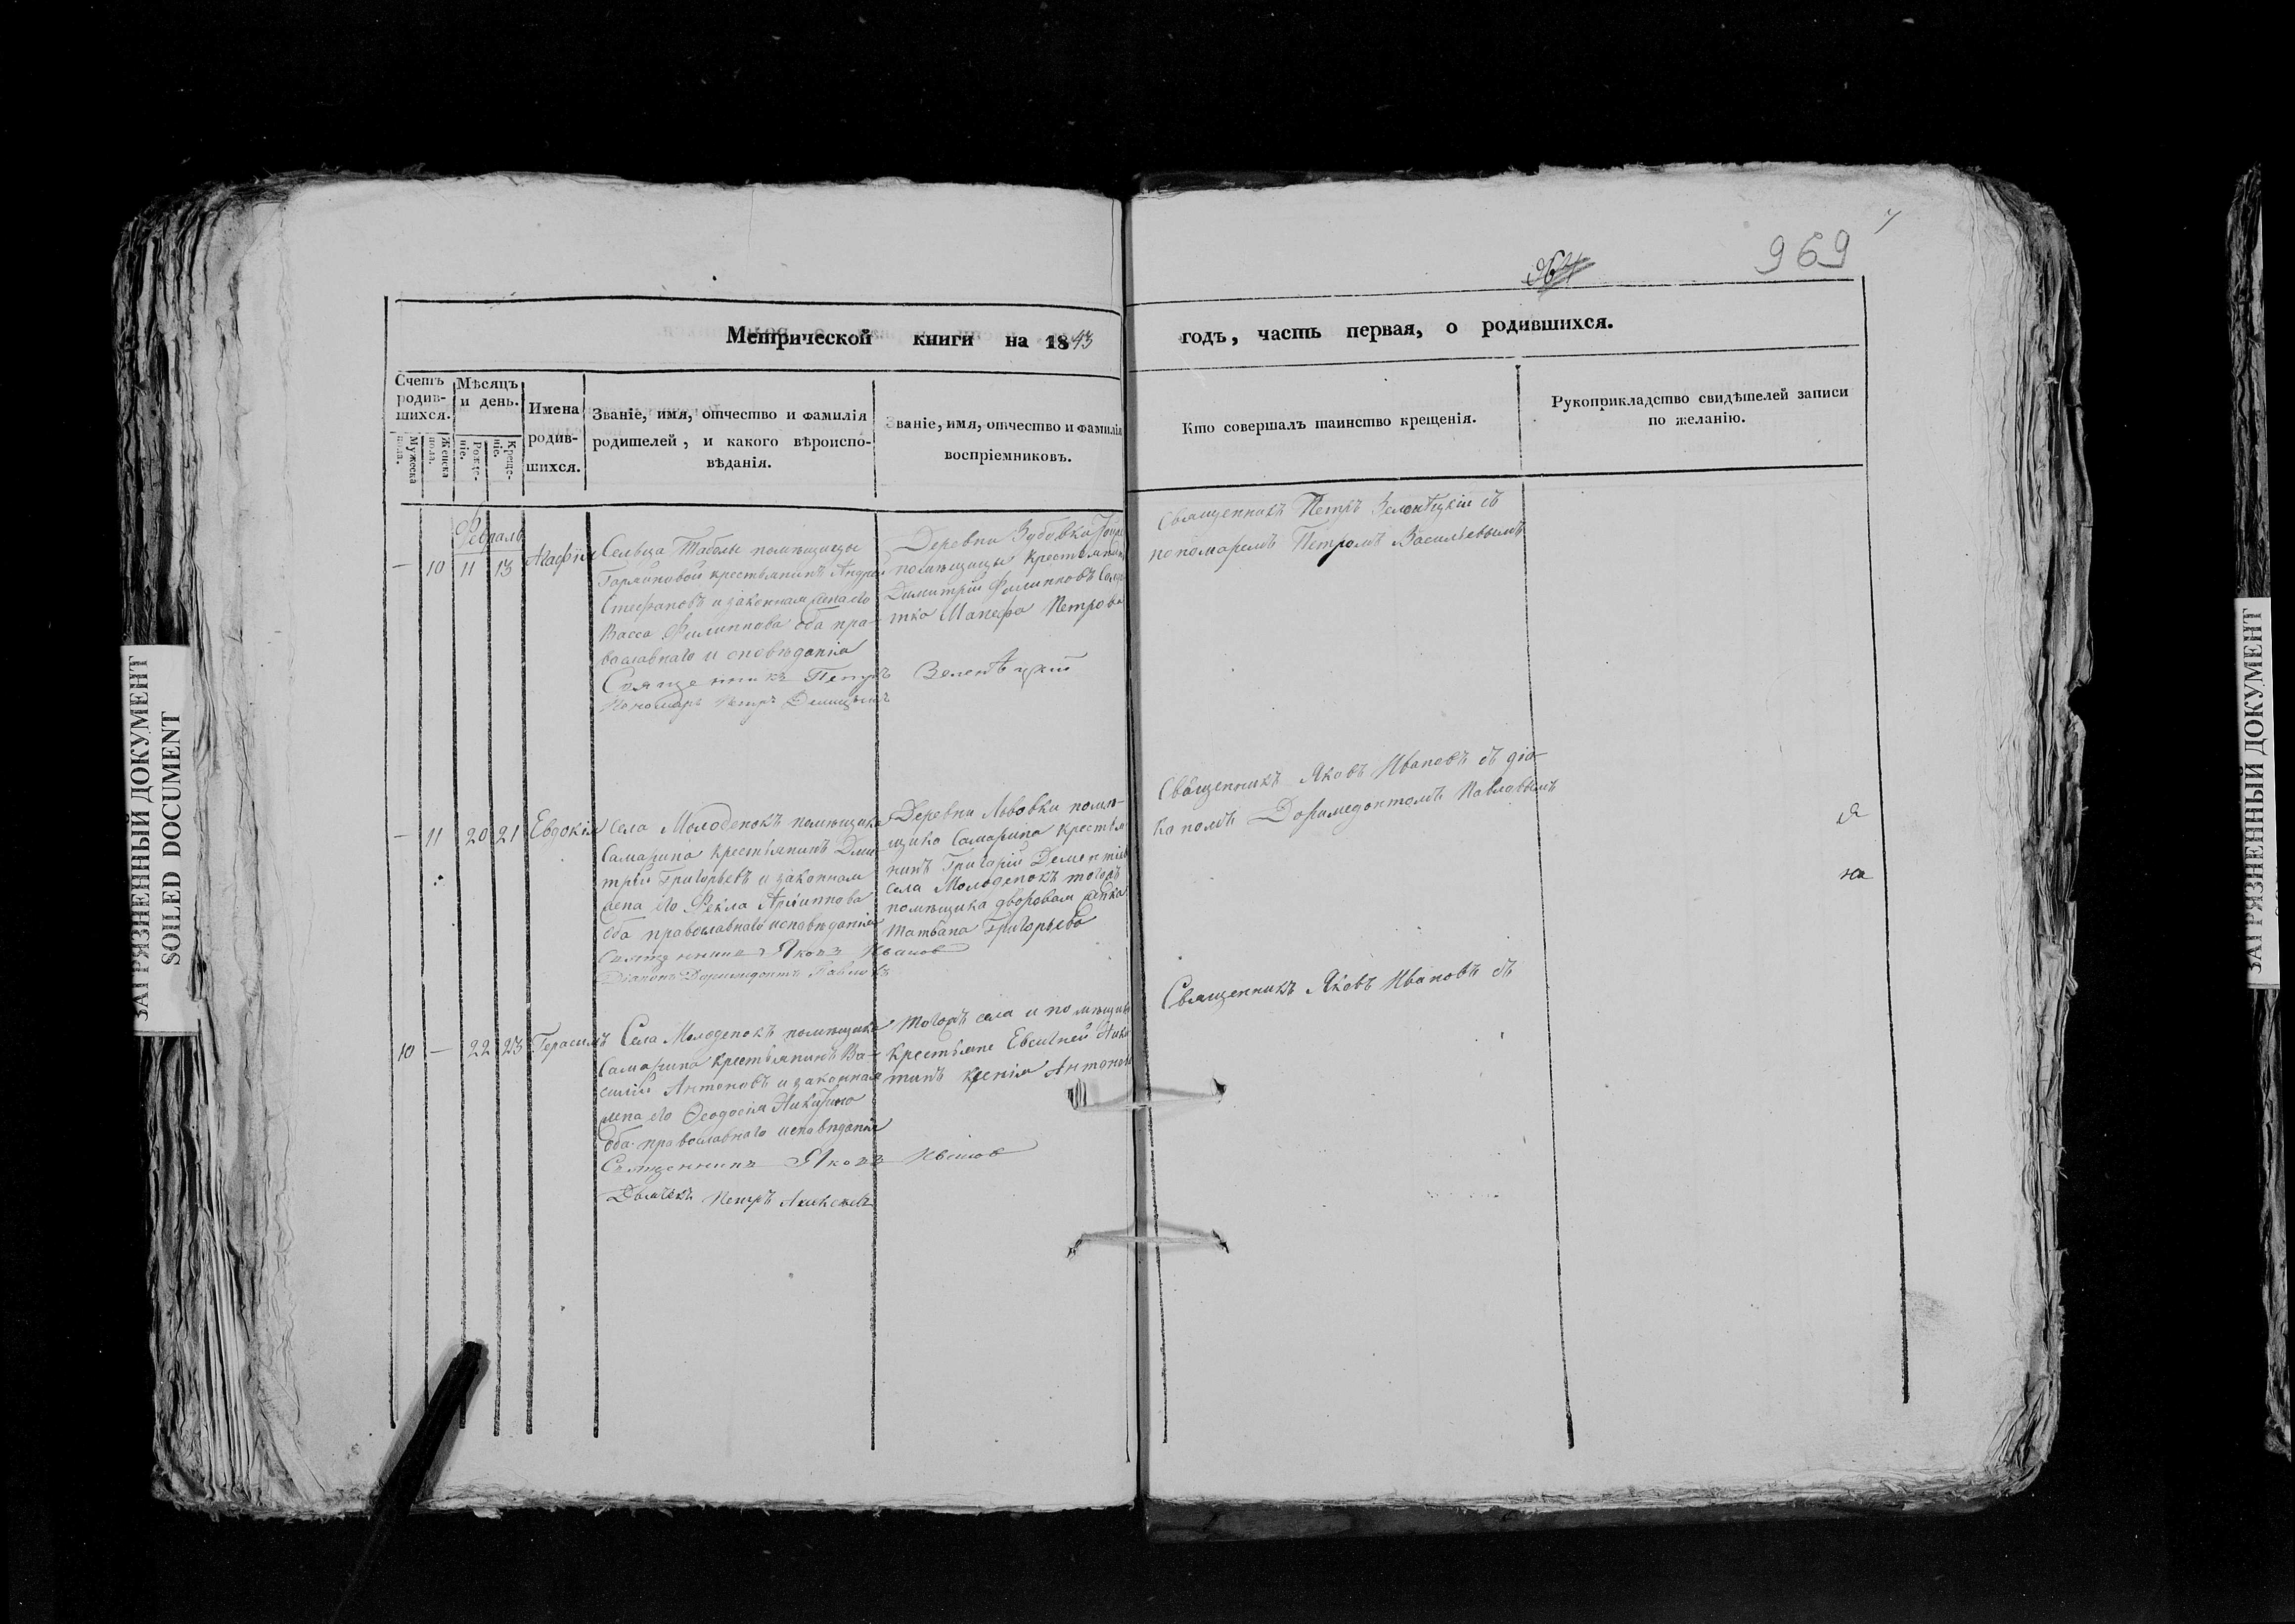 969
Метрической книги на 1843
годъ, часть первая, о родившихся.
Счетъ родив-шихся.
Мужеска пола.
Женска пола.
Мѣсяцъ и день.
Рожде-ніе.
Креще-ніе.
Имена родив-шихся.
Званіе, имя, отчество и фамилія
родителей, и какого вѣроиспо-
вѣданія.
Званіе, имя, отчество и фамилія
воспріемниковъ.
Кто совершалъ таинство крещенія.
Рукоприкладство свидѣтелей записи
по желанію.
Февраль
— 10 11 13 Агафія
Сельца Таболы помѣщицы
крестьянинъ Андрей
Стефановъ и законная жена его
Васса Филиппова оба пра-
вославнаго исповѣданія
Священникъ Петръ Зеленѣцкій
Пономарь Петръ
Деревни Зубовки
помѣщицы крестьянинъ
Димитрій Филипповъ
Петрова
Священникъ Петръ Зеленѣцкій съ
пономаремъ Петромъ Васильевымъ
— 11 20 21 Евдокія
Села Молоденокъ помѣщика
Самарина крестьянинъ Дми-
трій Григорьевъ и законная
жена его Фекла Архиппова
оба православнаго исповѣданія
Священникъ Яковъ Ивановъ
Діаконъ Доримедонтъ Павловъ
Деревни Львовки помѣ-
щика Самарина крестья
нинъ Григорій Дементіев
села Молоденокъ тогожъ
помѣщика дворовая дѣвка
Татьяна Григорьева
Священникъ Яковъ Ивановъ съ діа-
кономъ Доримедонтомъ Павловымъ
я
на
10 — 22 23 Герасимъ
Села Молоденокъ помѣщика
Самарина крестьянинъ Ва-
силій Антоновъ и законная
жена его Ѳеодосія Никитина
оба православнаго исповѣданія
Священникъ Яковъ Ивановъ
Дьячекъ Петръ Алексѣевъ
Тогожъ села и помѣщика
крестьяне Евсигней Ники
тинъ Ксенія Антонова
Священникъ Яковъ Ивановъ съ
ЗАГРЯЗНЕННЫЙ ДОКУМЕНТ
SOILED DOCUMENT
ЗАГРЯЗНЕННЫЙ ДОКУМЕНТ